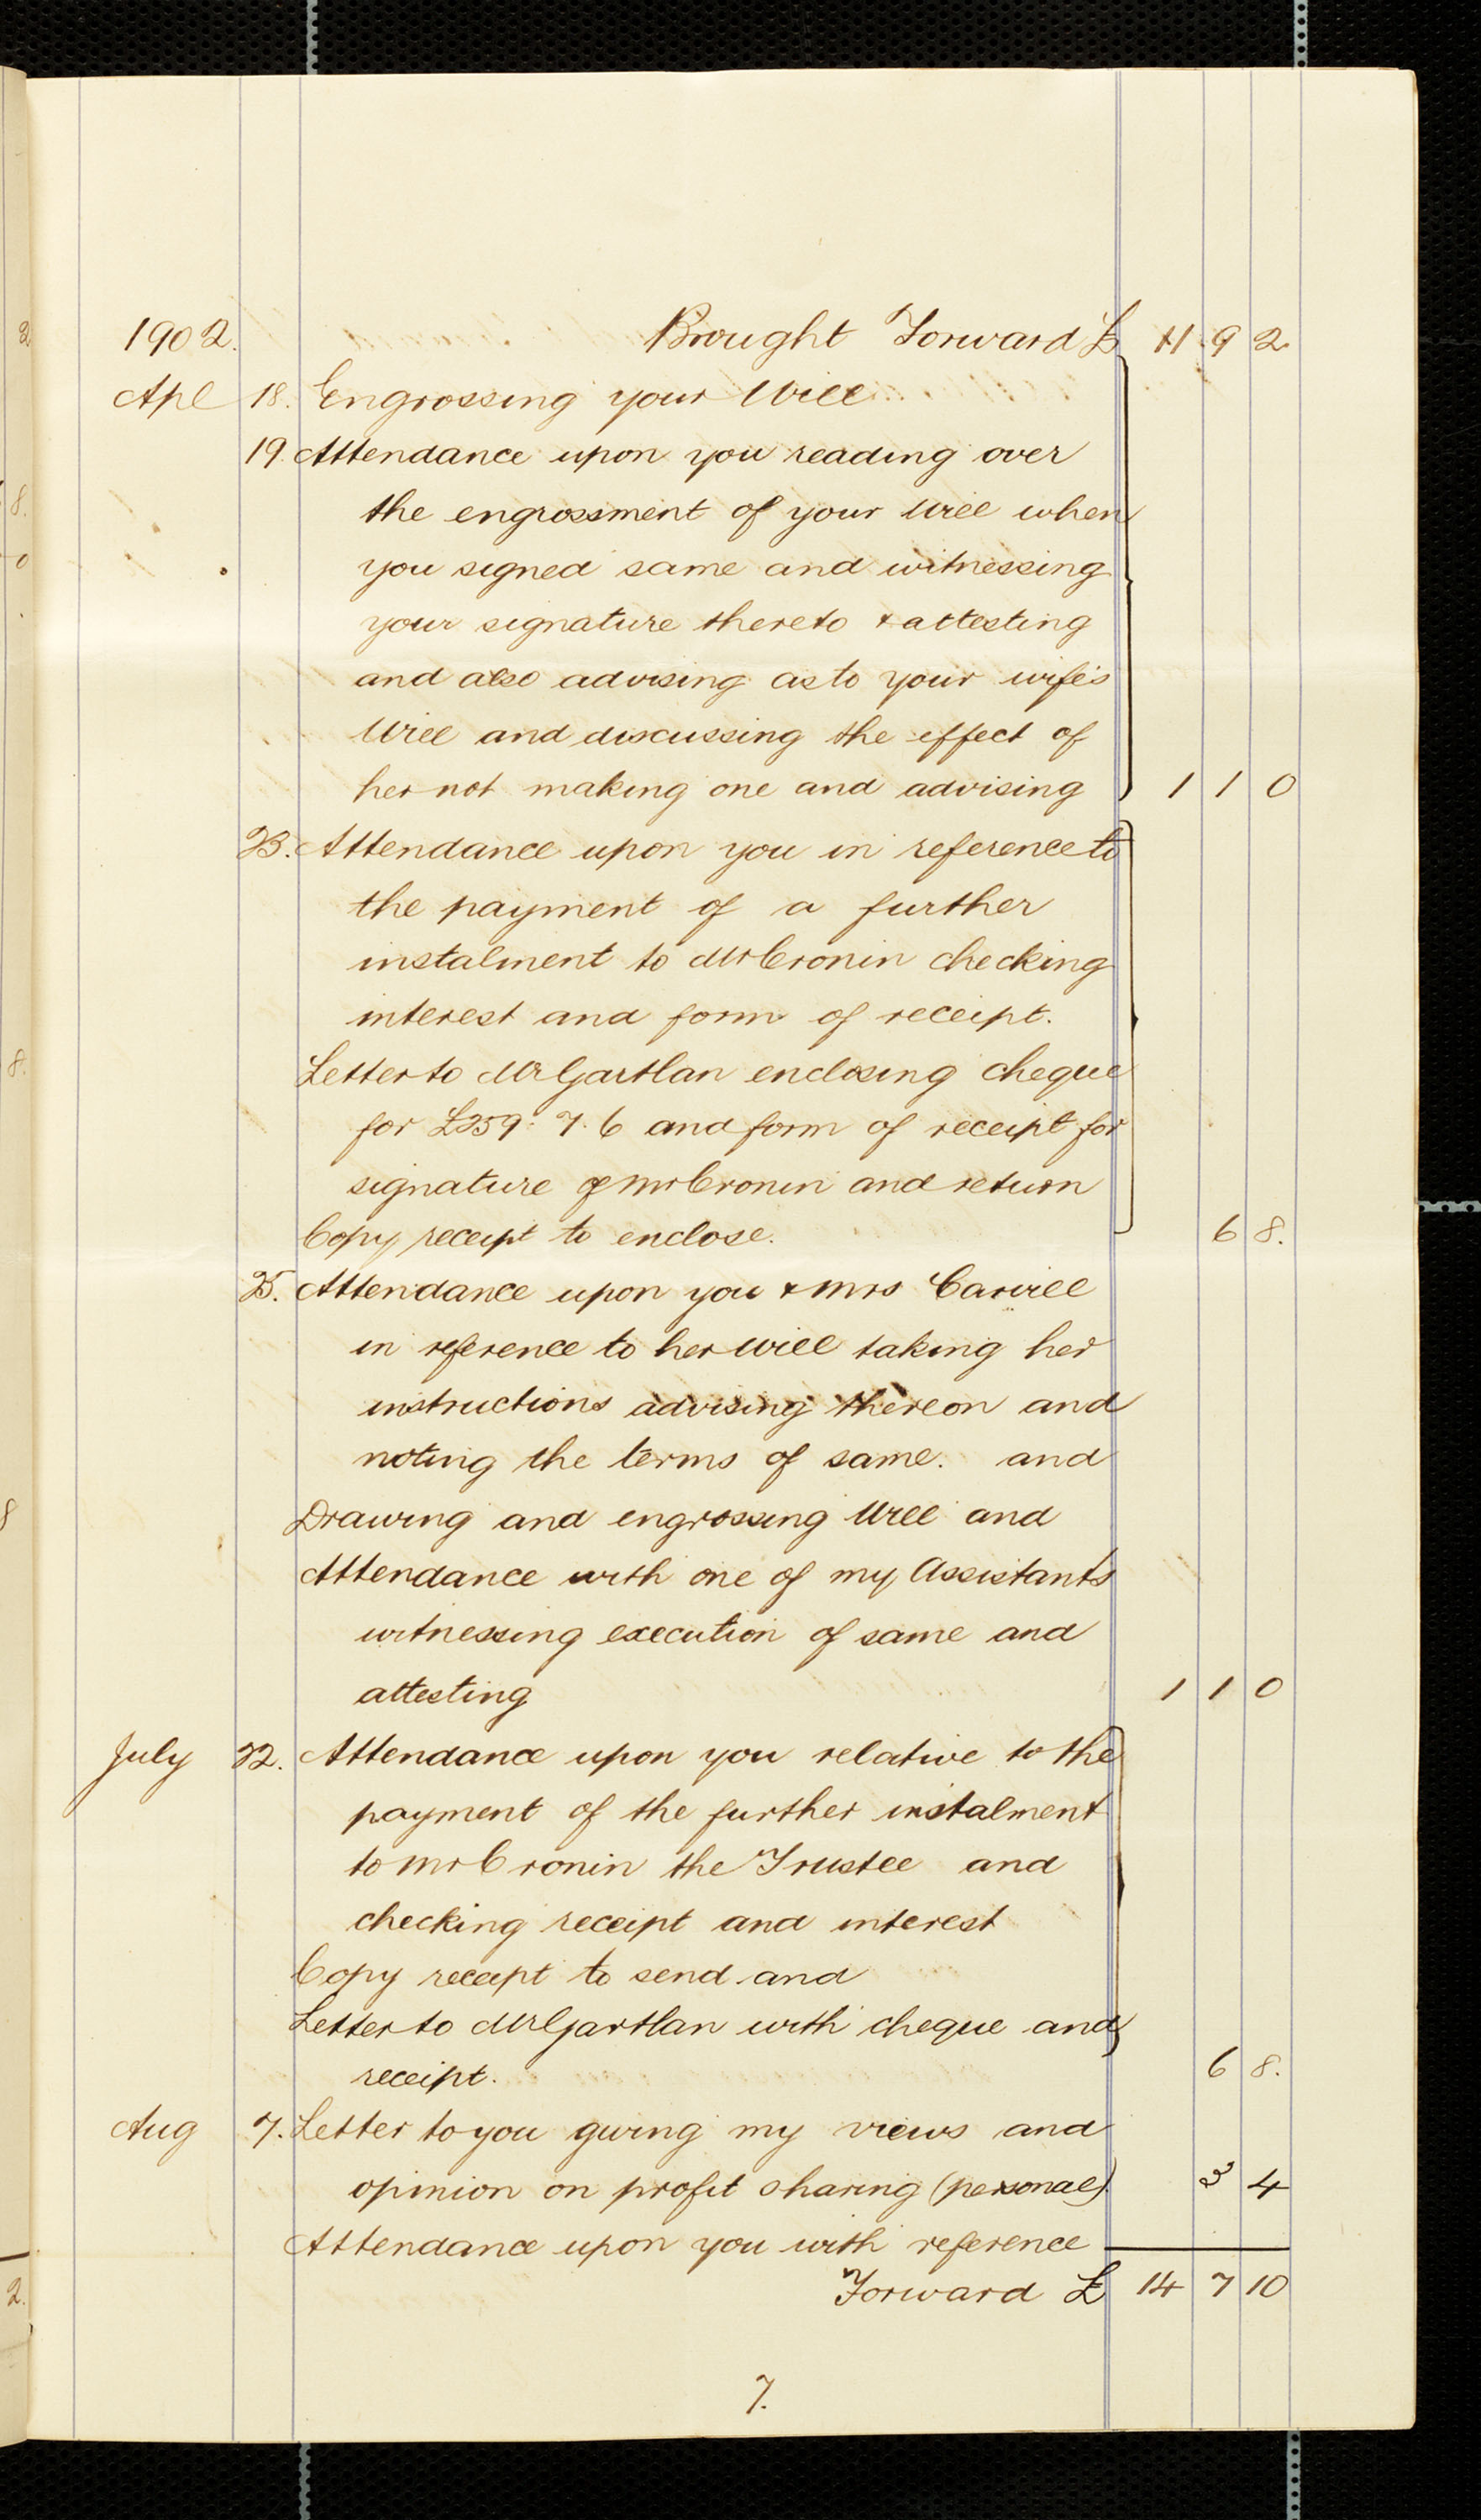 1902. Brought Forward £ 11 9 2
Apl 18. Engrossing your Will
19. Attendance upon you reading over
the engrossment of your Will when
you signed same and witnessing
your signature thereto & attesting
and also advising as to your wife's
Will and discussing the effect of
her not making one and advising 1 1 0
23. Attendance upon you in reference to
the payment of a further
instalment to Mr Cronin checking
interest and form of receipt.
Letter to Mr Gartlan enclosing cheque
for £259. 7. 6 and form of receipt for
signature of Mr Cronin and return
Copy receipt to enclose. 6 8.
25. Attendance upon you & Mrs Carvill
in reference to her Will taking her
instructions advising thereon and
noting the terms of same. and
Drawing and engrossing Will and
Attendance with one of my Assistants
witnessing execution of same and
attesting 1 1 0
July 22. Attendance upon you relative to the
payment of the further instalment
to Mr Cronin the Trustee and
checking receipt and interest
Copy receipt to send and
Letter to Mr Gartlan with cheque and
receipt. 6 8.
Aug 7. Letter to you giving my views and
opinion on profit sharing (personal) 3 4
Attendance upon you with reference
Forward £ 14 7 10
7.